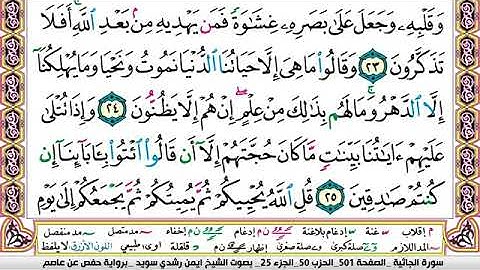 وَقَلْبِهِۦ وَجَعَلَ عَلَىٰ بَصَرِهِۦ غِشَٰوَةً فَمَن يَهْدِيهِ مِنۢ بَعْدِ ٱللَّهِ ۚ أَفَلَا
تَذَكَّرُونَ ٢٣ وَقَالُوا۟ مَا هِىَ إِلَّا حَيَاتُنَا ٱلدُّنْيَا نَمُوتُ وَنَحْيَا وَمَا يُهْلِكُنَآ
إِلَّا ٱلدَّهْرُ ۚ وَمَا لَهُم بِذَٰلِكَ مِنْ عِلْمٍ ۖ إِنْ هُمْ إِلَّا يَظُنُّونَ ٢٤ وَإِذَا تُتْلَىٰ
عَلَيْهِمْ ءَايَٰتُنَا بَيِّنَٰتٍ مَّا كَانَ حُجَّتَهُمْ إِلَّآ أَن قَالُوا۟ ٱئْتُوا۟ بِـَٔابَآئِنَآ إِن
كُنتُمْ صَٰدِقِينَ ٢٥ قُلِ ٱللَّهُ يُحْيِيكُمْ ثُمَّ يُمِيتُكُمْ ثُمَّ يَجْمَعُكُمْ إِلَىٰ يَوْمِ
م إقلاب غنة إدغام بلاغنة إدغام إخفاء مد متصل مد منفصل
المد اللازم صلة كبرى صلة صغرى إظهار قلقلة طبيعي اللون الأزرق لا يلفظ
سورة الجاثية _الصفحة 501_ الحزب 50_الجزء 25_ بصوت الشيخ ايمن رشدي سويد _ برواية حفص عن عاصم